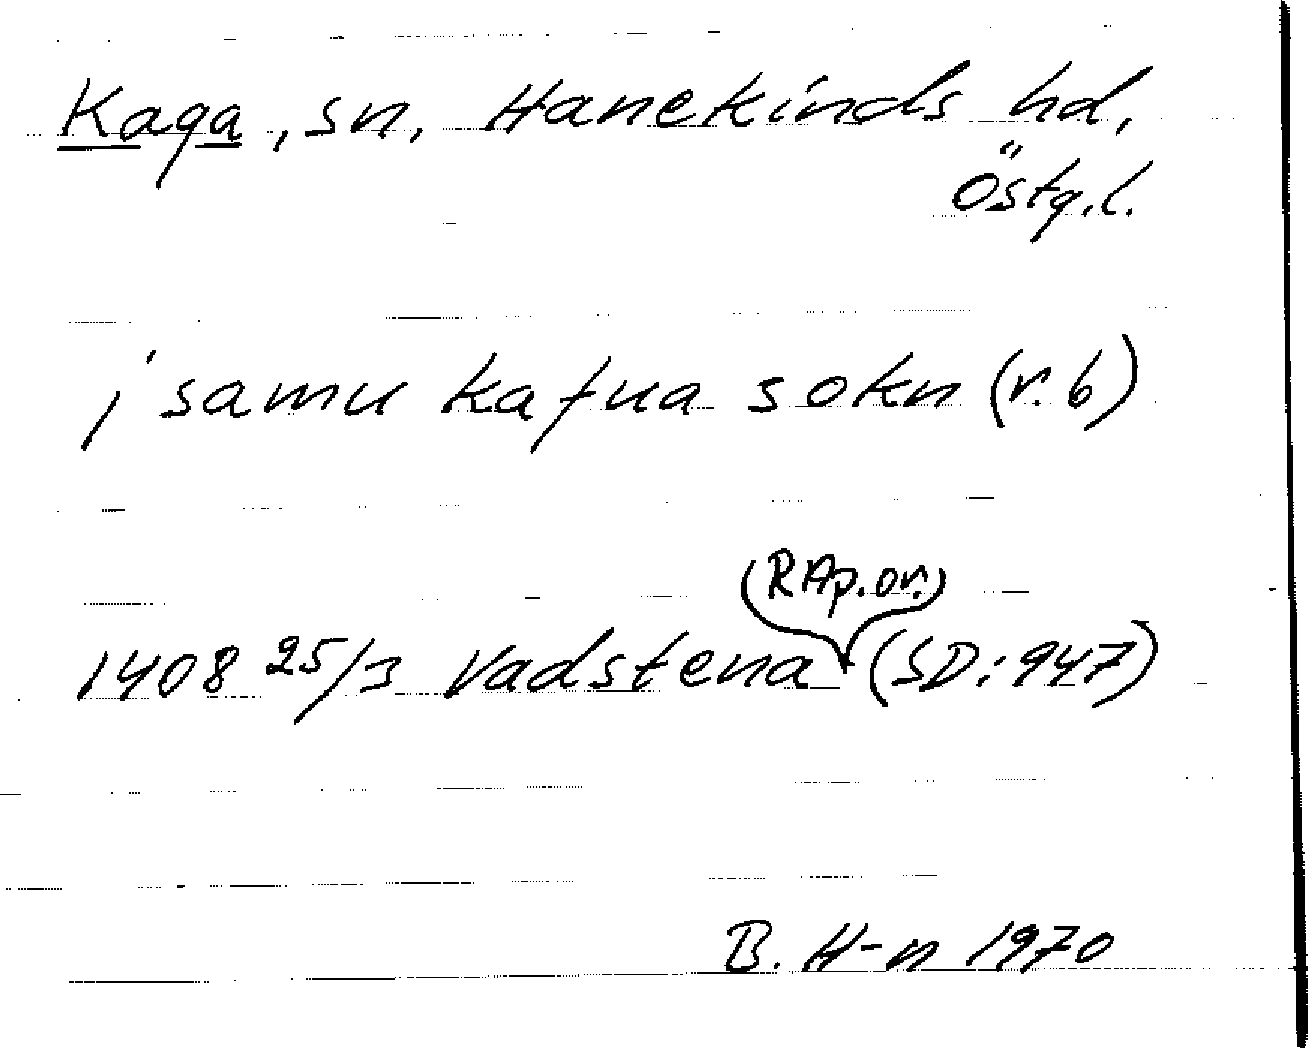 Kaga, sn, Hanekinds hd,
Östg.l.
j samu kafua sokn (r. 6)
(RAp.or.)
1408 25/3 Vadstena (SD:947)
B. H-n 1970